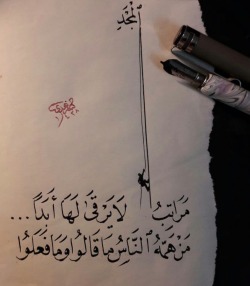 لِلْمَجْدِ
مَرَاتِبُ لَا يَرْقَىٰ لَهَا أَبَدًا...
مَنْ هَمُّهُ ٱلنَّاسُ مَا قَالُوا وَمَا فَعَلُوا